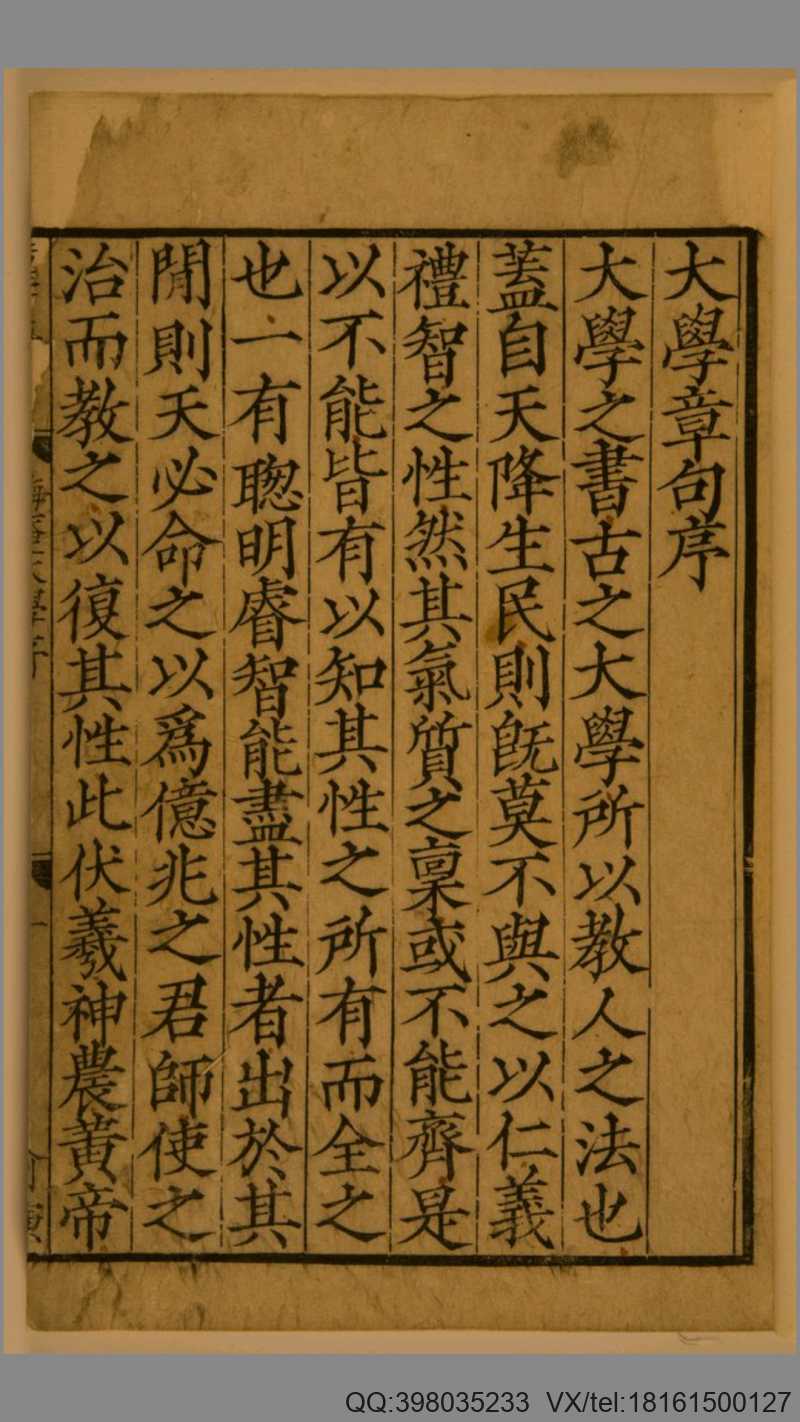 大學章句序
大學之書古之大學所以教人之法也
蓋自天降生民則旣莫不與之以仁義
禮智之性然其氣質之稟或不能齊是
以不能皆有以知其性之所有而全之
也一有聰明睿智能盡其性者出於其
閒則天必命之以爲億兆之君師使之
治而教之以復其性此伏羲神農黃帝
QQ:398035233 VX/tel:18161500127